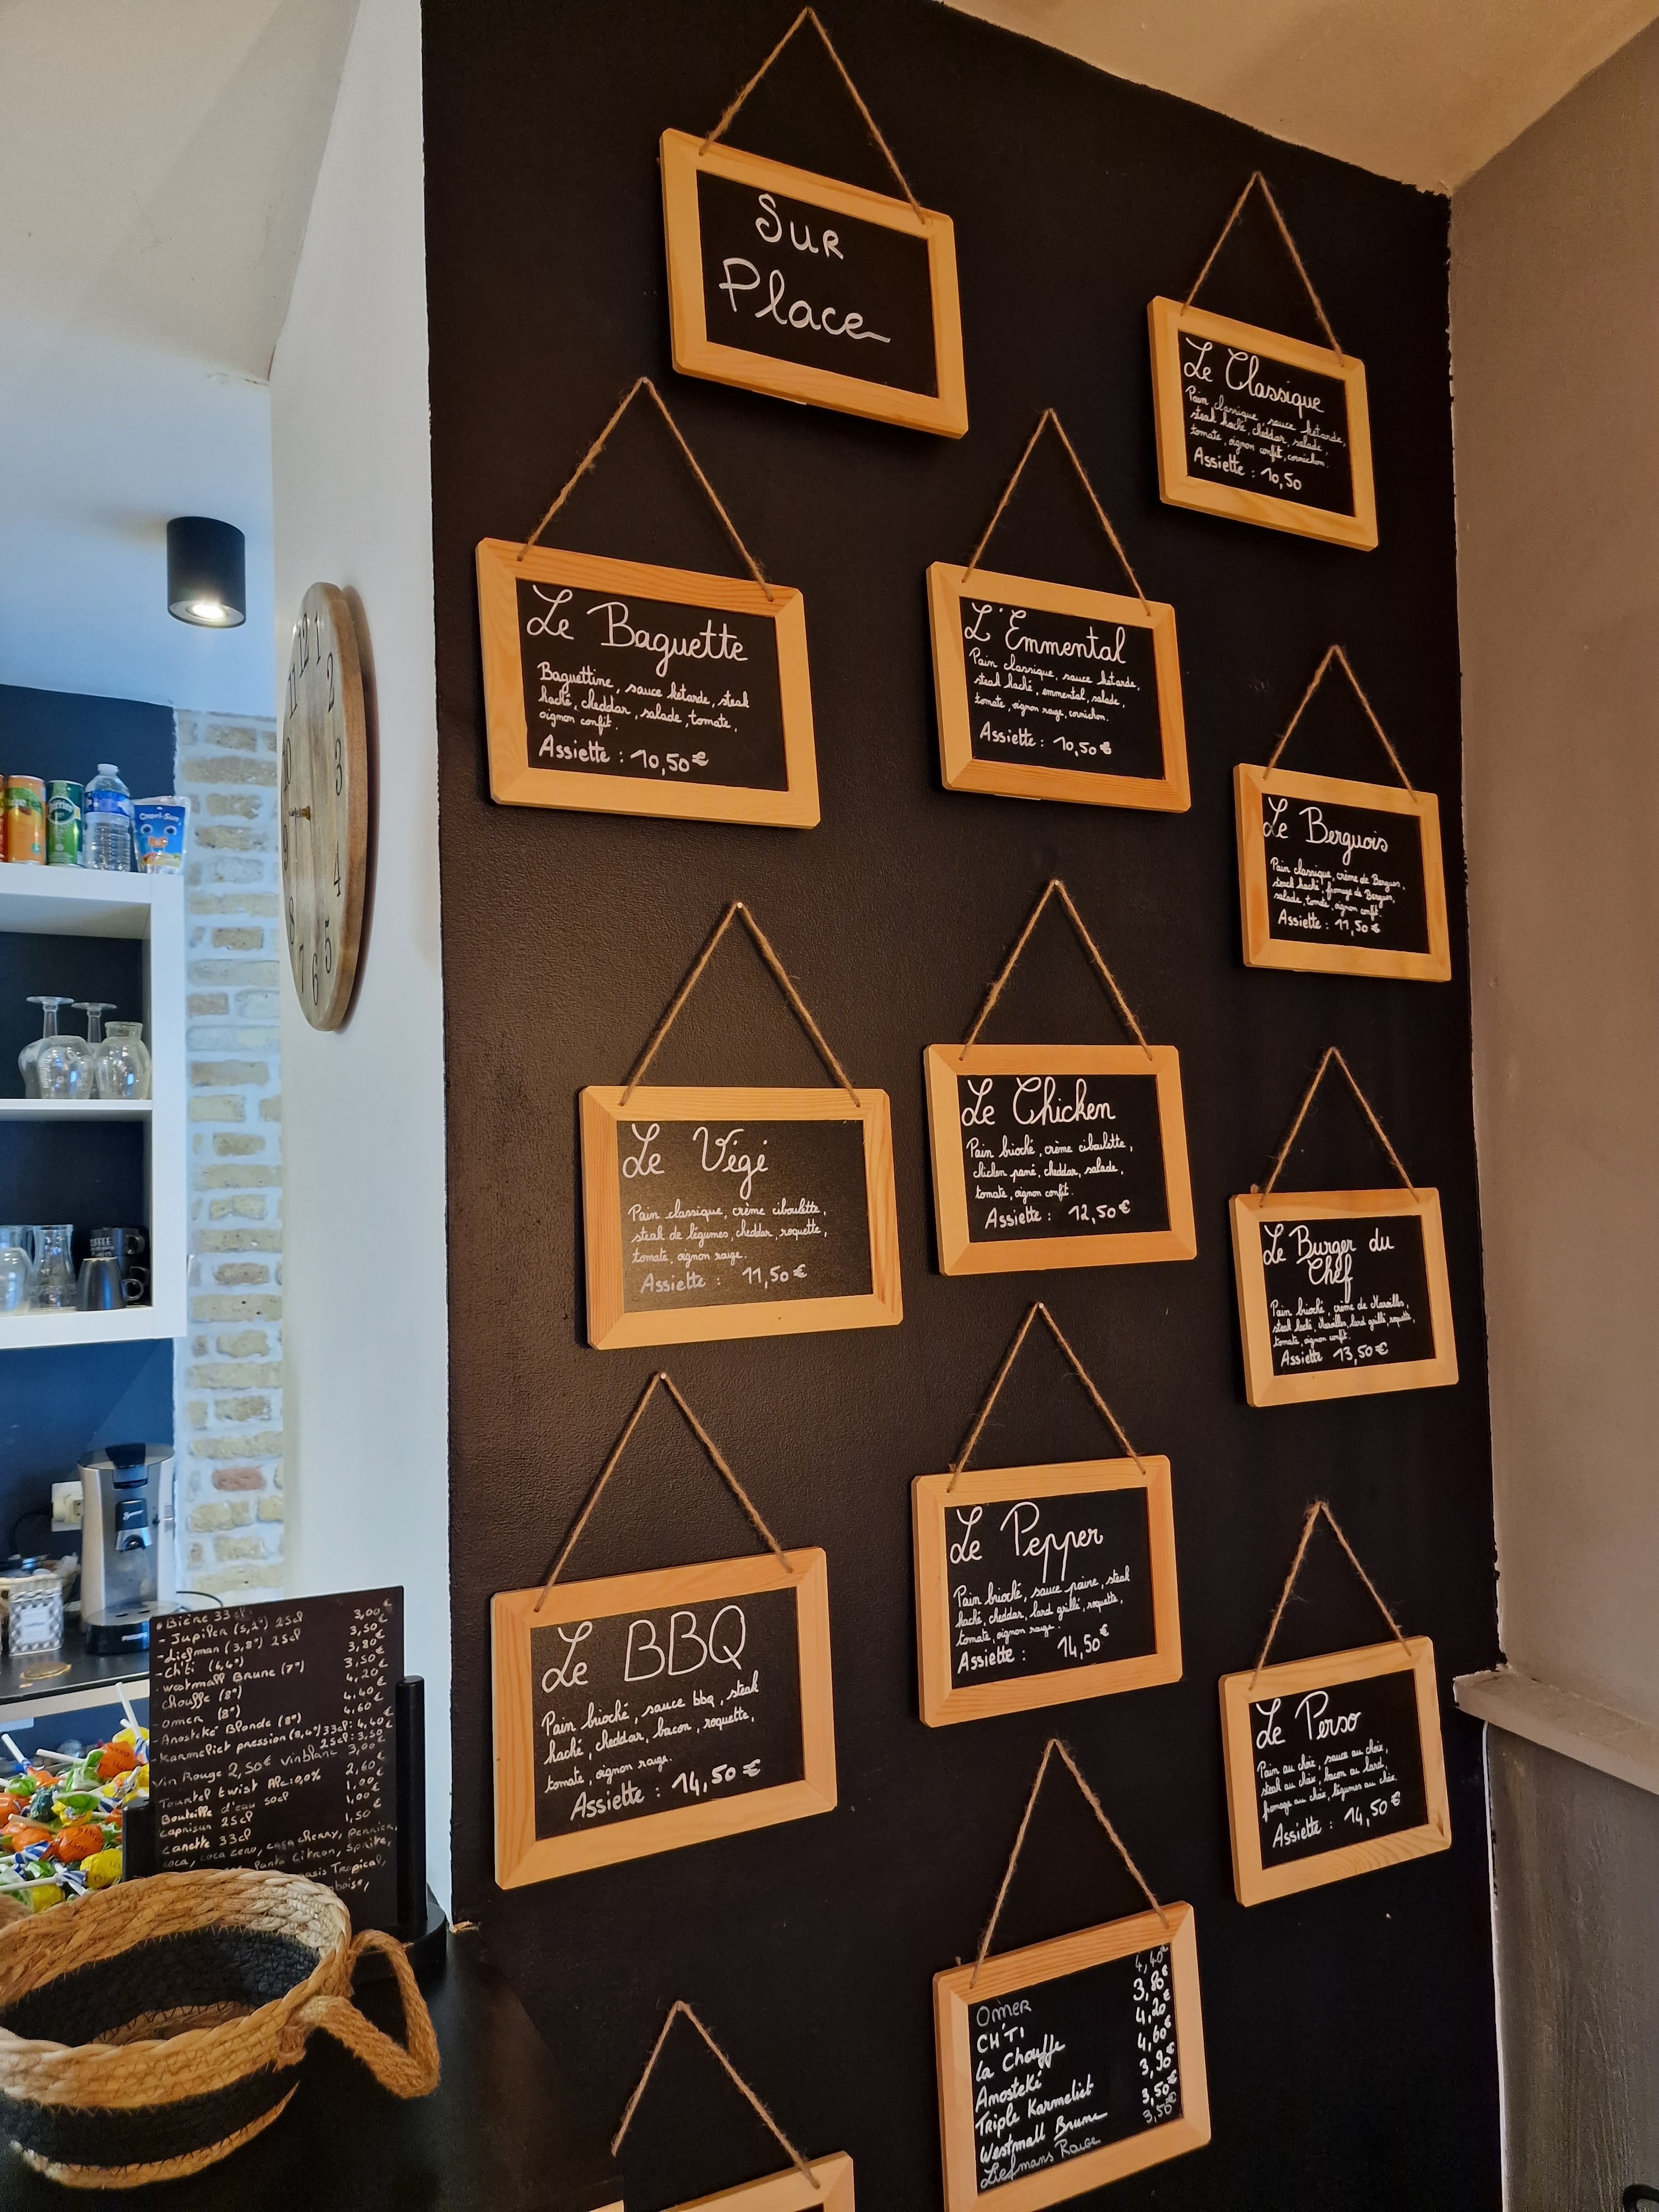 Sur
Place
Le Classique
Pain classique, sauce kétarde,
steak haché, cheddar, salade,
tomate, oignon confit, cornichon.
Assiette : 10,50
Le Baguette
Baguettine, sauce kétarde, steak
haché, cheddar, salade, tomate,
oignon confit.
Assiette : 10,50€
L'Emmental
Pain classique, sauce kétarde,
steak haché, emmental, salade,
tomate, oignon rouge, cornichon.
Assiette : 10,50€
Le Berguois
Pain classique, crème de Bergues,
steack haché, fromage de Bergues,
salade, tomate, oignon confit.
Assiette : 11,50€
Le Végé
Pain classique, crème ciboulette,
steak de légumes, cheddar, roquette,
tomate, oignon rouge.
Assiette : 11,50€
Le Chicken
Pain brioché, crème ciboulette,
chicken pané, cheddar, salade,
tomate, oignon confit.
Assiette : 12,50€
Le Burger du
Chef
Pain brioché, crème de Maroilles,
steak haché, Maroilles, lard grillé, roquette,
tomate, oignon confit.
Assiette 13,50€
Le BBQ
Pain brioché, sauce bbq, steak
haché, cheddar, bacon, roquette,
tomate, oignon rouge.
Assiette : 14,50€
Le Pepper
Pain brioché, sauce poivre, steak
haché, cheddar, lard grillé, roquette,
tomate, oignon rouge.
Assiette : 14,50€
Le Perso
Pain au choix, sauce au choix,
steak au choix, bacon ou lard,
fromage au choix, légumes au choix.
Assiette : 14,50€
4,40€
Omer 3,80€
CH'TI 4,20€
La Chouffe 4,60€
Anosteké 3,90€
Triple Karmeliet 3,50€
Westmall Brune 3,50€
Liefmans Rouge
• Bière 33cl 25cl 3,00€
- Jupiler (5,2°) 25cl 3,50€
- Liefman (3,8°) 3,80€
- Ch'ti (6,4°) 3,50€
- Westmall Brune (7°) 4,20€
Chouffe (8°) 4,40€
- Omer (8°) 4,60€
- Anosteké Blonde (8°)
- Karmeliet pression (8,4°) 33cl: 4,40€
25cl: 3,50€
Vin Rouge 2,50€ Vin blanc 3,00€
Tourtel twist Alc: 0,0% 2,60€
Bouteille d'eau 50cl 1,00€
Caprisun 25cl 1,00€
Canette 33cl 1,50€
Coca, Coca zero, Coca cherry, Perrier,
Fanta Citron, Sprite,
Oasis Tropical,
12
1
2
3
4
5
6
7
8
9
10
11
Capri-Sun
COFFEE